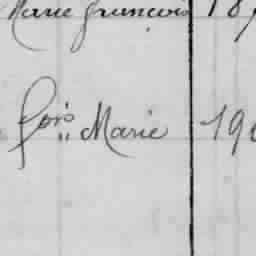 Marie François 18
fois Marie 190